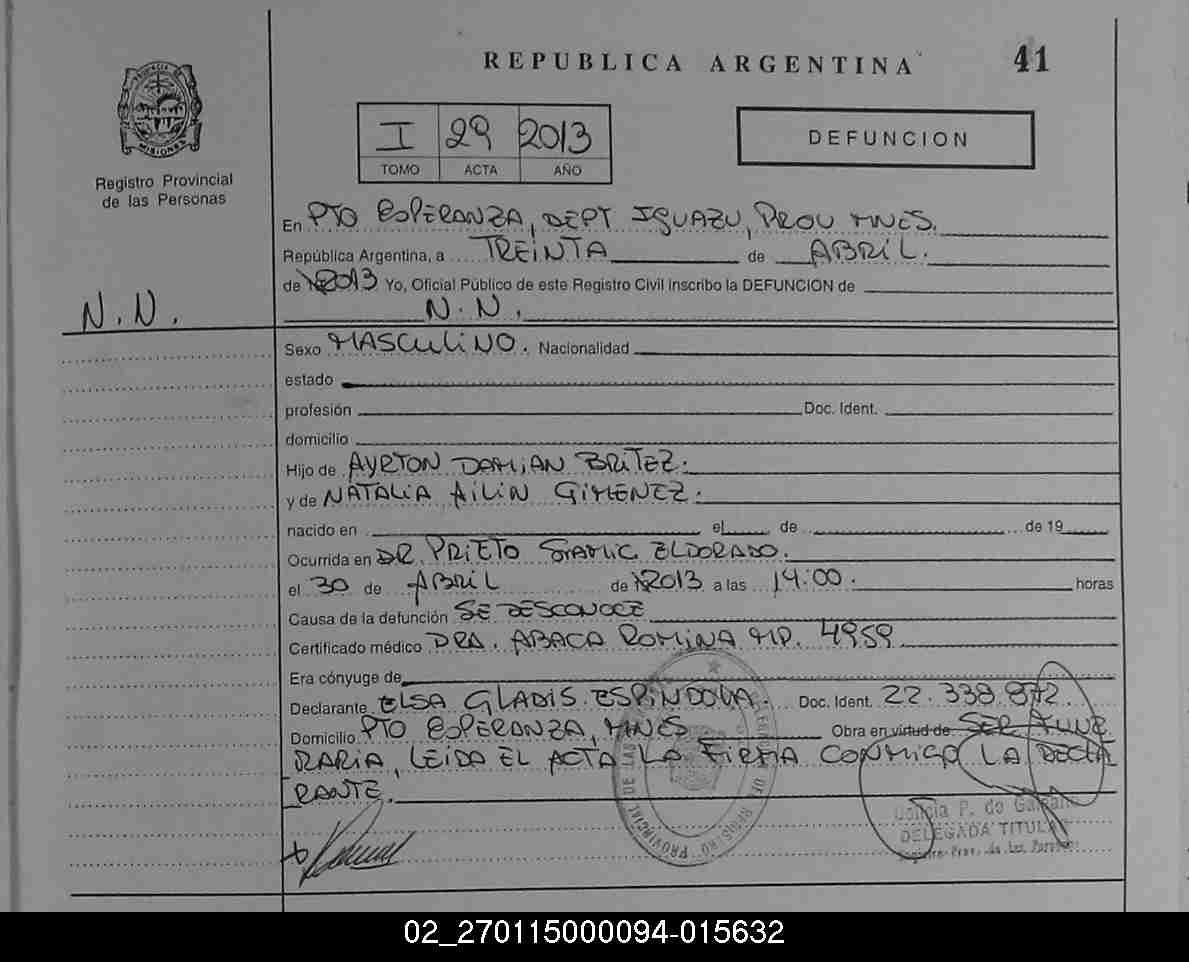 REPUBLICA ARGENTINA
41
PROVINCIA DE MISIONES
Registro Provincial
de las Personas
I 29 2013
TOMO ACTA AÑO
DEFUNCION
En PTO ESPERANZA, DEPT IGUAZU, PROV MNES.
República Argentina, a TREINTA de ABRIL.
de 2013 Yo, Oficial Público de este Registro Civil inscribo la DEFUNCION de
N.N.
N.N.
Sexo MASCULINO. Nacionalidad
estado
profesión Doc. Ident.
domicilio
Hijo de AYRTON DAMIAN BRITEZ.
y de NATALIA AILIN GIMENEZ.
nacido en el de de 19
Ocurrida en DR. PRIETO ELDORADO.
el 30 de ABRIL de 2013 a las 14:00. horas
Causa de la defunción SE DESCONOCE
Certificado médico DRA. ABACA ROMINA MP. 4959
Era cónyuge de
Declarante ELSA GLADIS ESPINDOLA. Doc. Ident. 22.338.872
Domicilio PTO ESPERANZA, MNES Obra en virtud de SER FUNE
RARIA, LEIDA EL ACTA LA FIRMA CONMIGO LA DECLA
RANTE.
PROVINCIAL DE LAS
P. de
DELEGADA TITULAR
Registro Prov. de las Personas
02_270115000094-015632